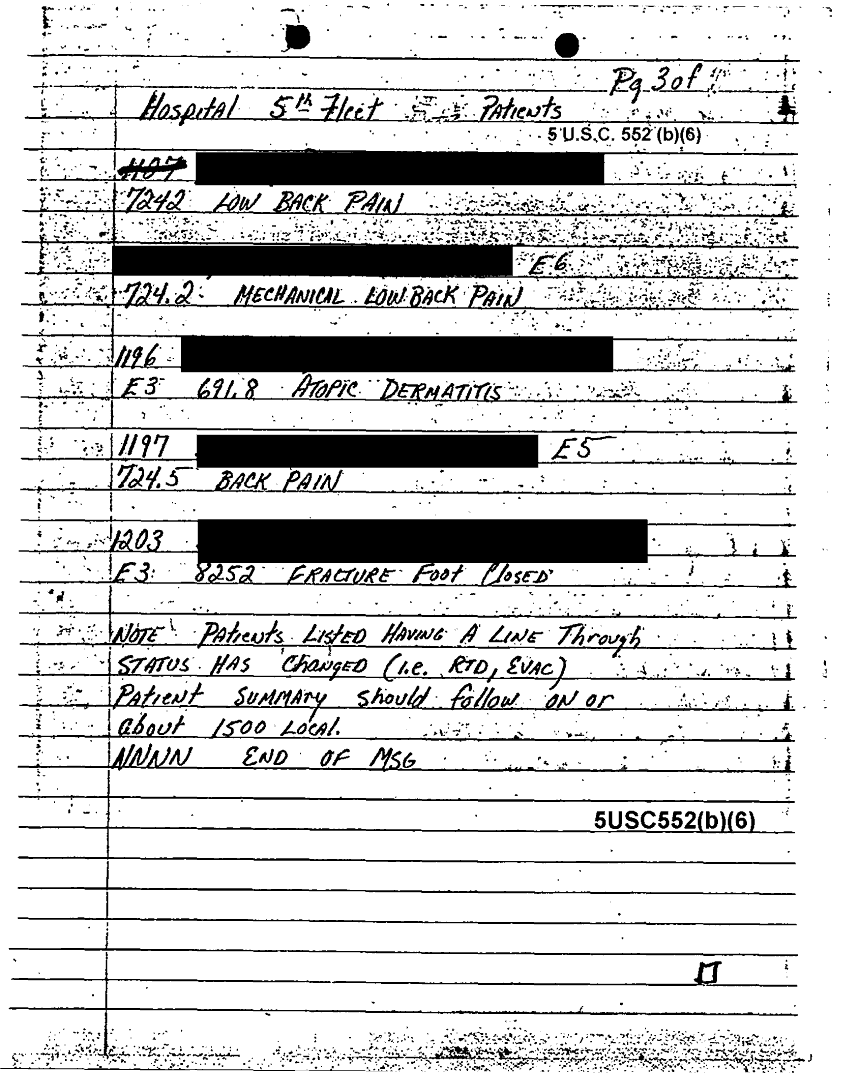 Pg 3 of
Hospital 5th Fleet Patients
5 U.S.C. 552 (b)(6)
1107
7242 LOW BACK PAIN
E6
724.2 MECHANICAL LOW BACK PAIN
1196
E3 691.8 ATOPIC DERMATITIS
1197 E5
724.5 BACK PAIN
1203
E3 8252 FRACTURE FOOT CLOSED
NOTE PATIENTS LISTED HAVING A LINE Through
STATUS HAS CHANGED (i.e. RTD, EVAC)
PATIENT SUMMARY should follow ON or
about 1500 LOCAL.
NNNN END OF MSG
5USC552(b)(6)